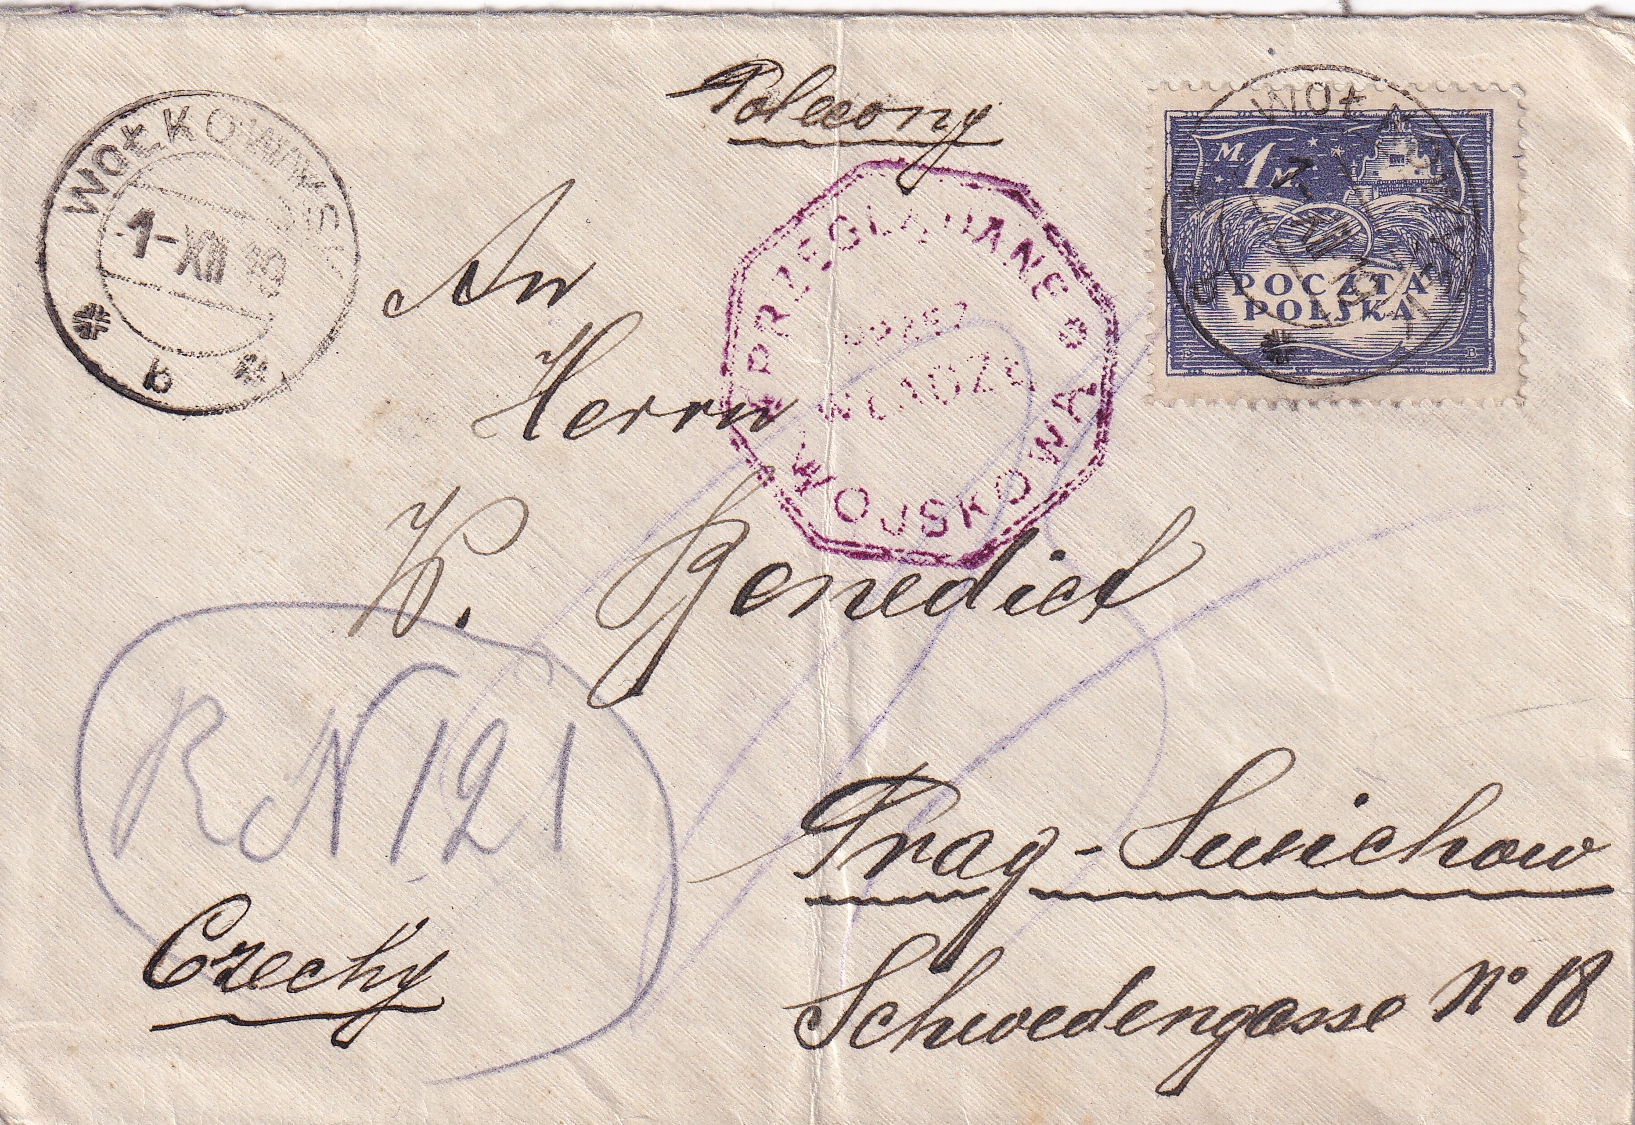 Polecony
WOŁKOWYSK
1-XII 19
b
M. 1 M.
POCZTA
POLSKA
PRZEGLĄDANE
WŁADZA
WOJSKOWA
An
Herrn
W. Benedict
R N 121
Prag-Smichow
Czechy
Schwedengasse No 18